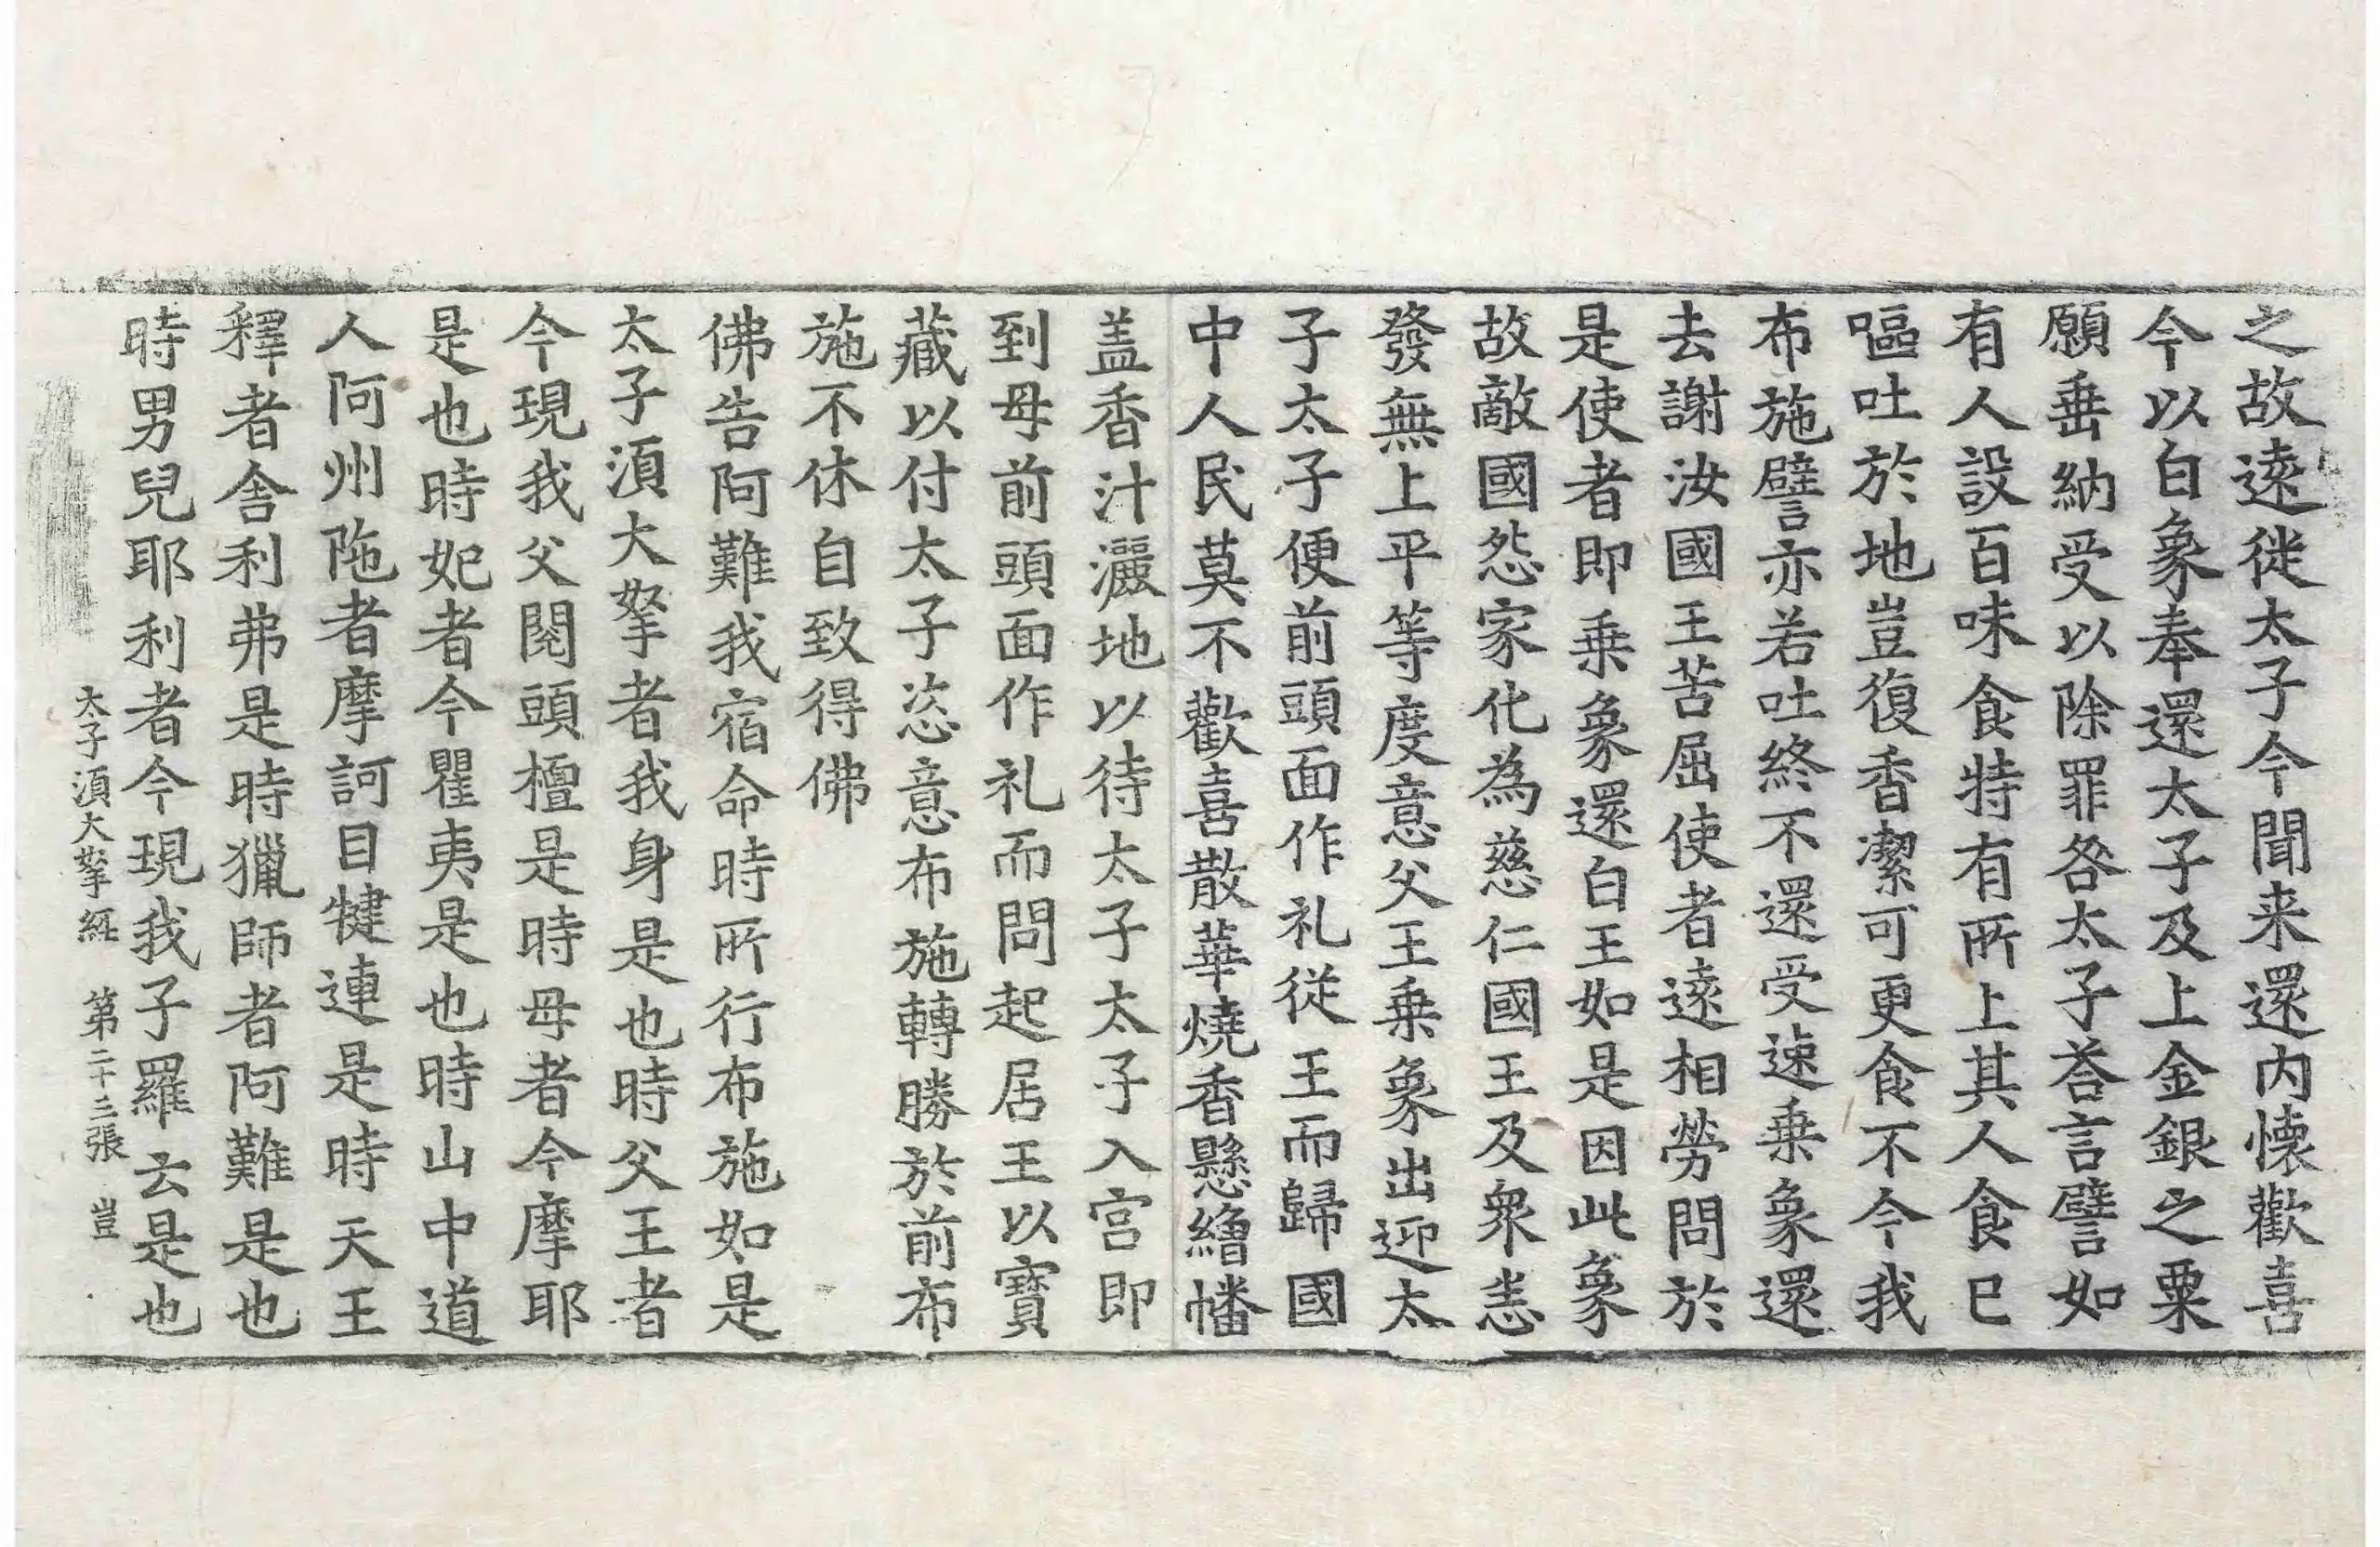 之故逺從太子今聞来還内懐歡喜
今以白象奉還太子及上金銀之粟
願垂納受以除罪咎太子荅言譬如
有人設百味食特有所上其人食已
嘔吐於地豈復香潔可更食不今我
布施譬亦若吐終不還受速乗象還
去謝汝國王苦屈使者逺相勞問於
是使者即乗象還白王如是因此象
故敵國怨家化為慈仁國王及衆恚
發無上平等度意父王乗象出迎太
子太子便前頭面作礼從王而歸國
中人民莫不歡喜散華燒香懸繒幡
盖香汁灑地以待太子太子入宫即
到母前頭面作礼而問起居王以寳
藏以付太子恣意布施轉勝於前布
施不休自致得佛
佛告阿難我宿命時所行布施如是
太子湏大拏者我身是也時父王者
今現我父閱頭檀是時母者今摩耶
是也時妃者今瞿夷是也時山中道
人阿州陁者摩訶目犍連是時天王
釋者舎利弗是時獵師者阿難是也
時男兒耶利者今現我子羅云是也
太子湏大拏経 第二十三張 豈